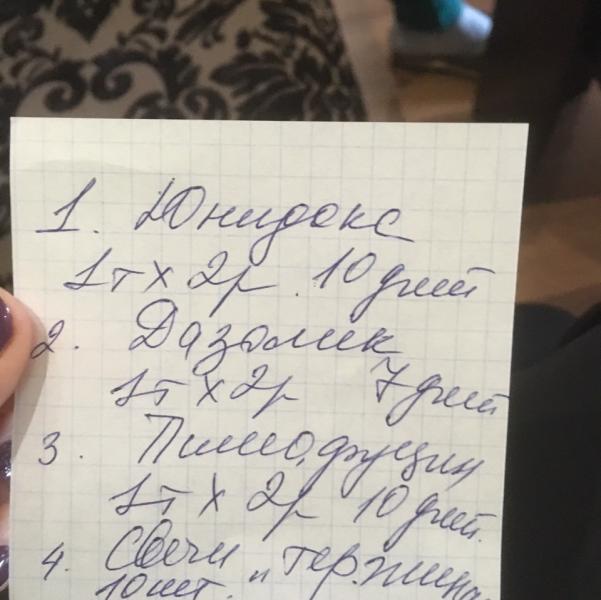 1. Юнидокс
1т х 2р. 10 дней
2. Дазолик
1т х 2р 7 дней
3. Пимафуцин
1т х 2р 10 дней.
4. Свечи "Тержинан
10шт.